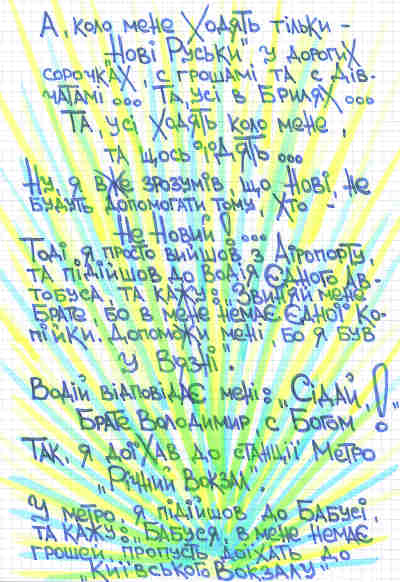 А, коло мене Ходять тільки -
„Нові Руськи", у дорогих
сорочках, с грошамі та с дів-
чатамі... Та, усі в Брилях...
Та, усі Ходять коло мене,
та щось їдять...
Ну, я вже зрозумів, що Нові, не
будуть допомогати тому, хто -
Не Новий!...
Тоді я просто вийшов з Аїропорту,
та підійшов до водія Єдного Ав-
тобуса, та кажу: „Звиняй мене
Брате, бо в мене немає Єдної ко-
пійки. Допоможи мені, бо я був
у Вязні".
Водій відповідає мені: „Сідай,
Брате Володимир с Богом!"
Так, я доїхав до станції Метро
„Річний Вокзал".
У метро я підійшов до Бабусі,
та кажу: „Бабуся, в мене немає
грошей, пропусть доїхать до
„Київського Вокзалу"